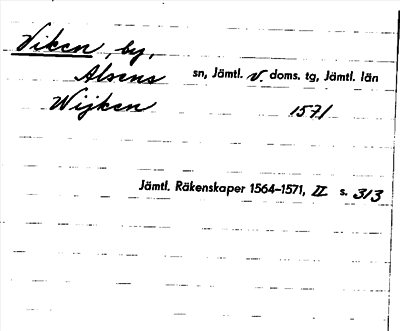 Viken, by,
Alsens sn, Jämtl. v doms. tg, Jämtl. län
Wijken 1571
Jämtl. Räkenskaper 1564-1571, II s. 313